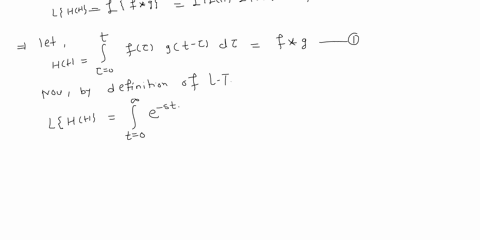 L{H(t)} = L{f*g} =
⇒ let,
H(t) = ∫_{τ=0}^{t} f(τ) g(t-τ) dτ = f*g —— ①
Now, by definition of L.T.
L{H(t)} = ∫_{t=0}^{∞} e^{-st}.